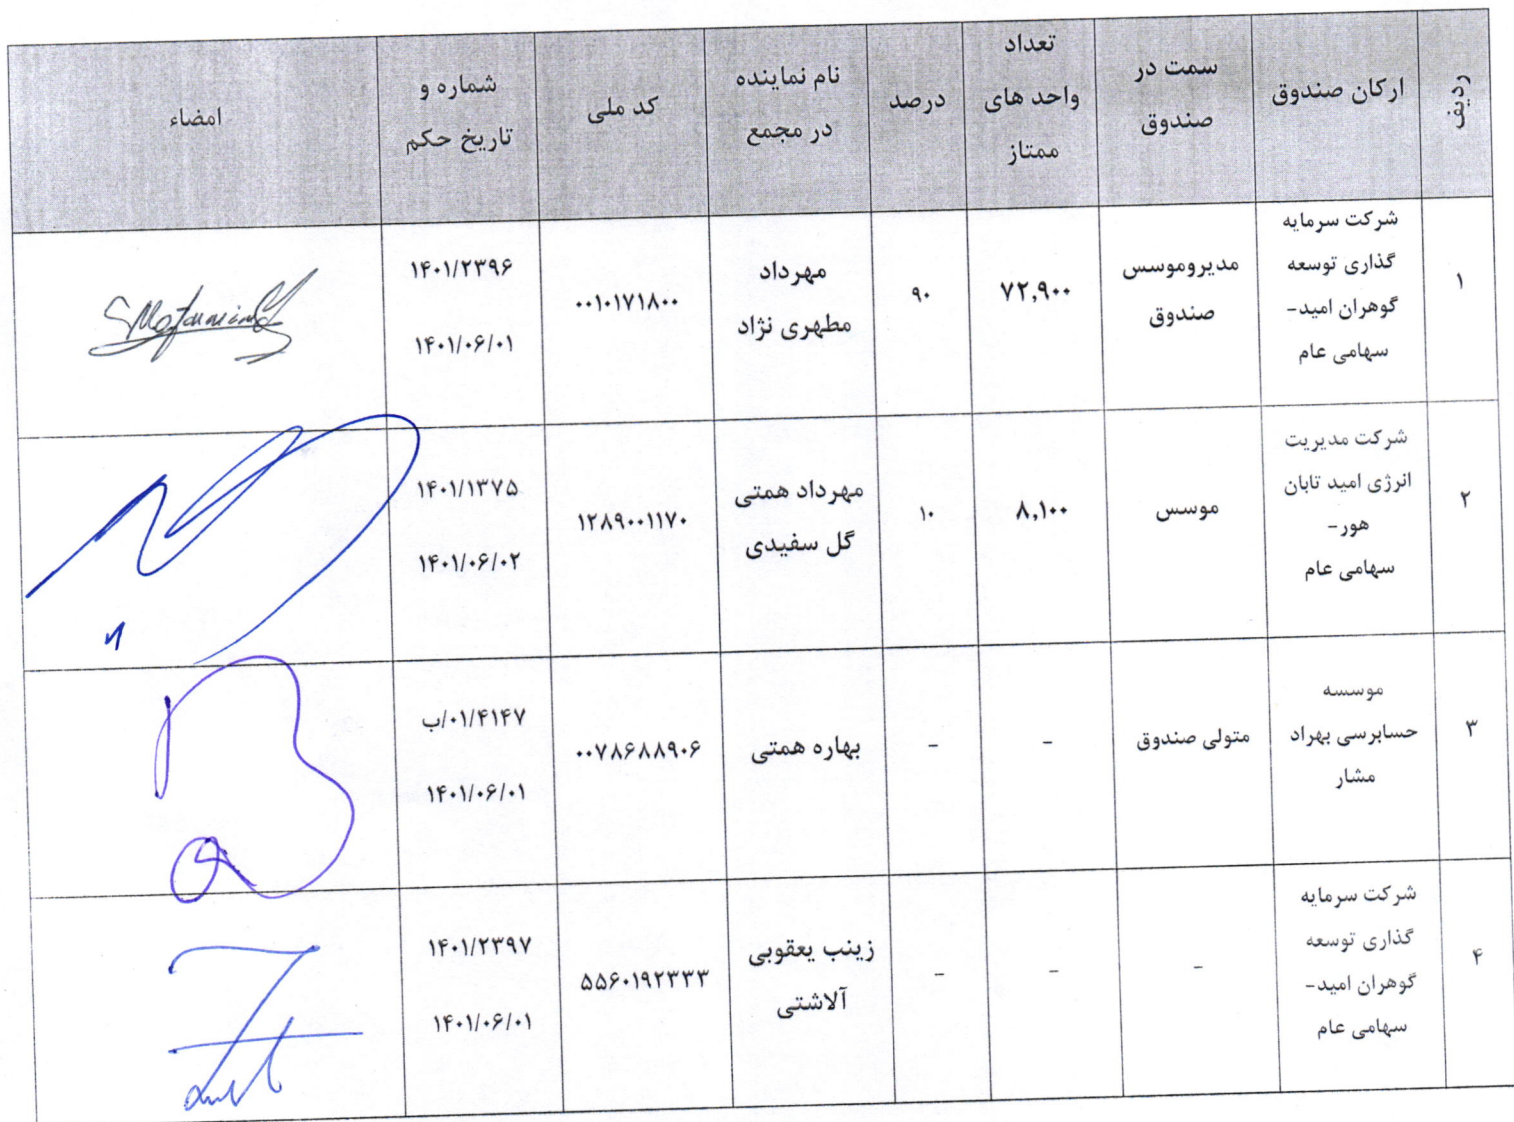 ردیف
ارکان صندوق
سمت در
صندوق
تعداد
واحد های
ممتاز
درصد
نام نماینده
در مجمع
کد ملی
شماره و
تاریخ حکم
امضاء
۱
شرکت سرمایه
گذاری توسعه
گوهران امید-
سهامی عام
مدیروموسس
صندوق
۷۲,۹۰۰
۹۰
مهرداد
مطهری نژاد
۰۰۱۰۱۷۱۸۰۰
۱۴۰۱/۲۳۹۶
۱۴۰۱/۰۶/۰۱
۲
شرکت مدیریت
انرژی امید تابان
هور-
سهامی عام
موسس
۸,۱۰۰
۱۰
مهرداد همتی
گل سفیدی
۱۲۸۹۰۰۱۱۷۰
۱۴۰۱/۱۳۷۵
۱۴۰۱/۰۶/۰۲
۳
موسسه
حسابرسی بهراد
مشار
متولی صندوق
-
-
بهاره همتی
۰۰۷۸۶۸۸۹۰۶
۰۱/۴۱۴۷/ب
۱۴۰۱/۰۶/۰۱
۴
شرکت سرمایه
گذاری توسعه
گوهران امید-
سهامی عام
-
-
-
زینب یعقوبی
آلاشتی
۵۵۶۰۱۹۲۳۳۳
۱۴۰۱/۲۳۹۷
۱۴۰۱/۰۶/۰۱